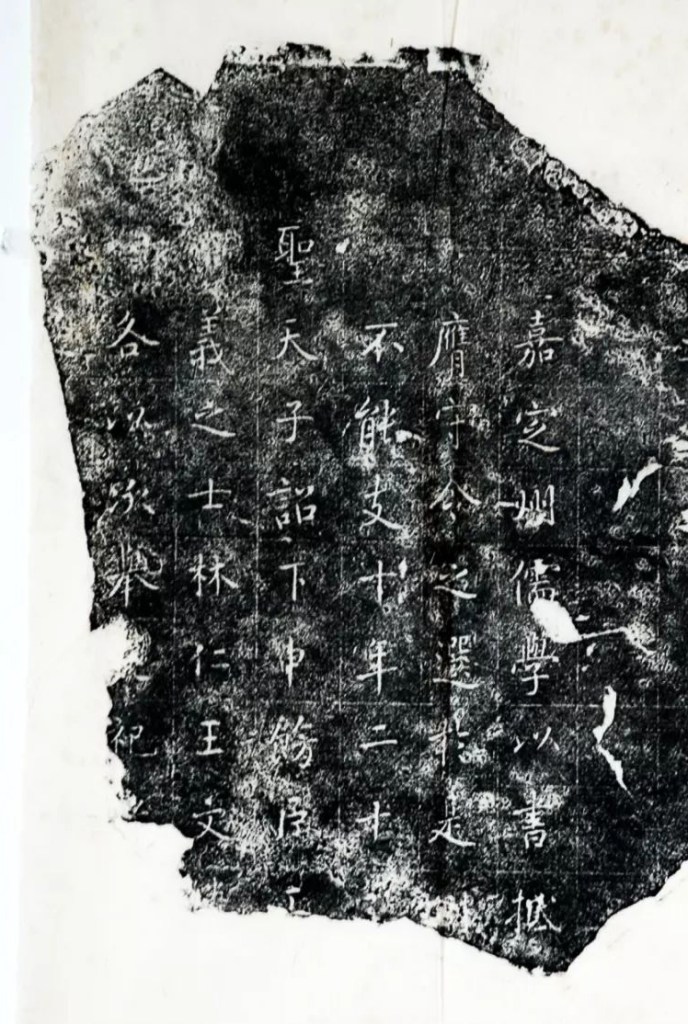 嘉定州儒學以書抵
膺守令之選於是州
不能支十年二十
聖天子詔下申飭臣工
義之士林仁王文
各以永舉祀